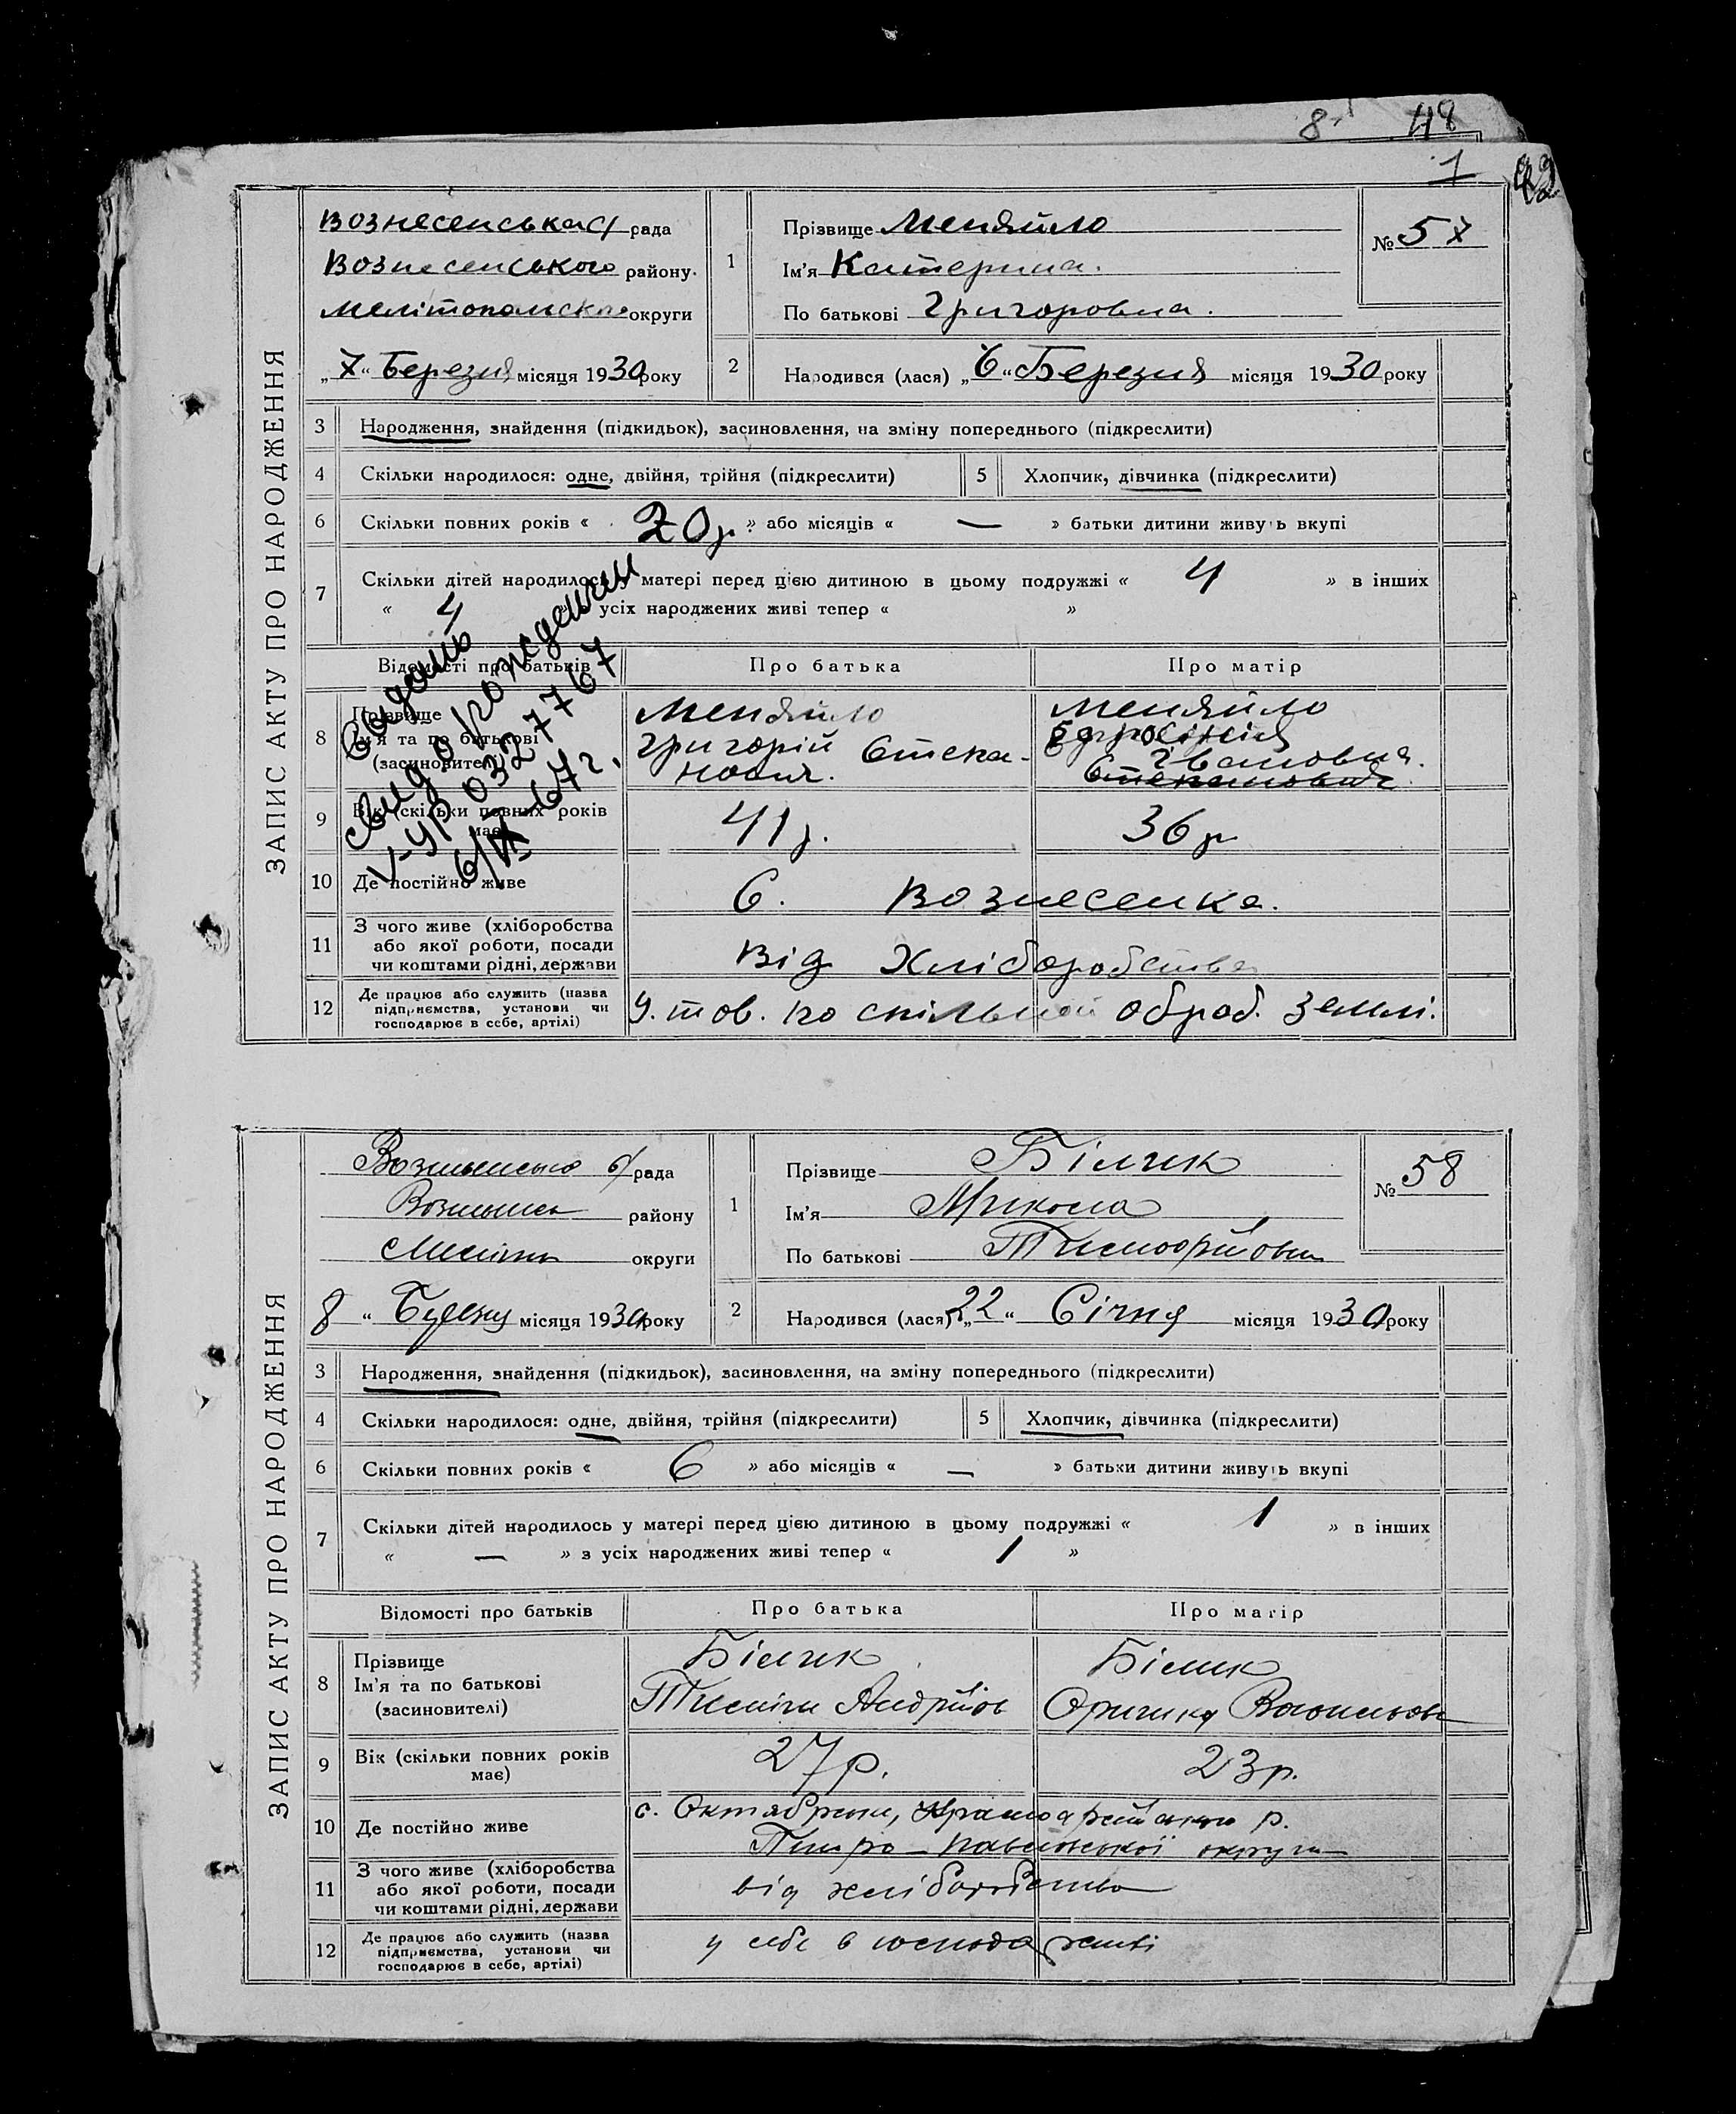 8 48
1 49
ЗАПИС АКТУ ПРО НАРОДЖЕННЯ
Вознесенська с/ рада
Вознесенського району
Мелітопольської округи
„7“ Березня місяця 1930 року
1 Прізвище Меняйло
Ім'я Катерина.
По батькові Григоровна.
№ 57
2 Народився (лася) „6“ Березня місяця 1930 року
3 Народження, знайдення (підкидьок), засиновлення, на зміну попереднього (підкреслити)
4 Скільки народилося: одне, двійня, трійня (підкреслити) 5 Хлопчик, дівчинка (підкреслити)
6 Скільки повних років « 20 р. » або місяців « — » батьки дитини живуть вкупі
7 Скільки дітей народилось у матері перед цією дитиною в цьому подружжі « 4 » в інших
« 4 усіх народжених живі тепер « »
Видано
свид о рождении
V-УР 0327767
6/IX-67 г.
Відомості про батьків Про батька Про матір
8 Прізвище Меняйло Меняйло
Ім'я та по батькові Григорій Степа-
(засиновителі) нович. Івановна.
Степановна
9 Вік (скільки повних років має) 41 р. 36 р
10 Де постійно живе С. Вознесенка.
11 З чого живе (хліборобства
або якої роботи, посади
чи коштами рідні, держави Від Хліборобства
12 Де працює або служить (назва
підприємства, установи чи
господарює в себе, артілі) У. тов. по спільній оброб. землі.
ЗАПИС АКТУ ПРО НАРОДЖЕННЯ
с/ рада
району
округи
8 “ Березня місяця 1930 року
1 Прізвище Білик
Ім'я Микола
По батькові
№ 58
2 Народився (лася) „22“ Січня місяця 1930 року
3 Народження, знайдення (підкидьок), засиновлення, на зміну попереднього (підкреслити)
4 Скільки народилося: одне, двійня, трійня (підкреслити) 5 Хлопчик, дівчинка (підкреслити)
6 Скільки повних років « 6 » або місяців « — » батьки дитини живуть вкупі
7 Скільки дітей народилось у матері перед цією дитиною в цьому подружжі « 1 » в інших
« — » з усіх народжених живі тепер « 1 »
Відомості про батьків Про батька Про матір
8 Прізвище Білик Білик
Ім'я та по батькові
(засиновителі)
9 Вік (скільки повних років
має) 27 р. 23 р.
10 Де постійно живе с. р.
Петро-Павлівської округи
11 З чого живе (хліборобства
або якої роботи, посади
чи коштами рідні, держави від хліборобства
12 Де працює або служить (назва
підприємства, установи чи
господарює в себе, артілі) у себе в господарстві